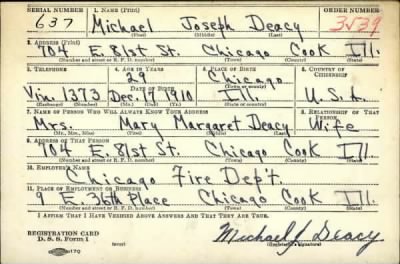 SERIAL NUMBER 1. NAME (Print) ORDER NUMBER
637 Michael Joseph Deacy 3539
(First) (Middle) (Last)
2. ADDRESS (Print)
704 E. 81st St. Chicago Cook Ill.
(Number and street or R. F. D. number) (Town) (County) (State)
3. TELEPHONE 4. AGE IN YEARS 5. PLACE OF BIRTH 6. COUNTRY OF CITIZENSHIP
29 Chicago
DATE OF BIRTH
Vin. 1373 Dec. 17 1910 Ill. U.S.A.
(Exchange) (Number) (Mo.) (Day) (Yr.) (State or country)
7. NAME OF PERSON WHO WILL ALWAYS KNOW YOUR ADDRESS 8. RELATIONSHIP OF THAT PERSON
Mrs. Mary Margaret Deacy Wife
(Mr., Mrs., Miss) (First) (Middle) (Last)
9. ADDRESS OF THAT PERSON
704 E 81st St. Chicago Cook Ill.
(Number and street or R. F. D. number) (Town) (County) (State)
10. EMPLOYER'S NAME
Chicago Fire Dep't.
11. PLACE OF EMPLOYMENT OR BUSINESS
9 E. 36th Place Chicago Cook Ill.
(Number and street or R. F. D. number) (Town) (County) (State)
I AFFIRM THAT I HAVE VERIFIED ABOVE ANSWERS AND THAT THEY ARE TRUE.
REGISTRATION CARD
D. S. S. Form 1 (over) Michael J Deacy
(Registrant's signature)